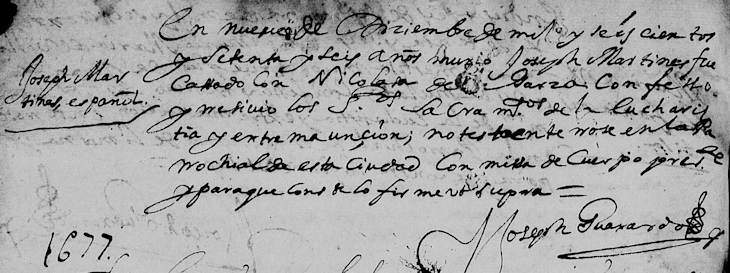 En nueve de Diziembre de mil y seis cientos
y setenta y seis años murio Joseph Martines fue
Joseph Mar
tines, español.
Cassado con Nicolasa de la Garza Confesso
y resivio los S.tos Sacram.tos de la Eucharis
tia y extremauncion; no testo enterrose en la Pa
rrochial de esta Ciudad Con missa de Cuerpo pres.te
y para que conste lo firme ut supra =
Joseph Guaxardo
1677.